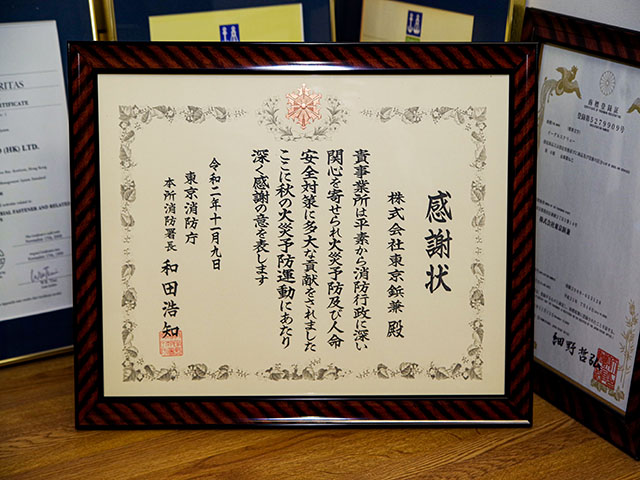 感謝状
株式会社東京鋲兼 殿
貴事業所は平素から消防行政に深い
関心を寄せられ火災予防及び人命
安全対策に多大な貢献をされました
ここに秋の火災予防運動にあたり
深く感謝の意を表します
令和二年十一月九日
東京消防庁
本所消防署長 和田浩知
RITAS
CERTIFICATE
(HK) LTD.
商標登録証
登録第5279909号
株式会社東京鋲兼
細野哲弘